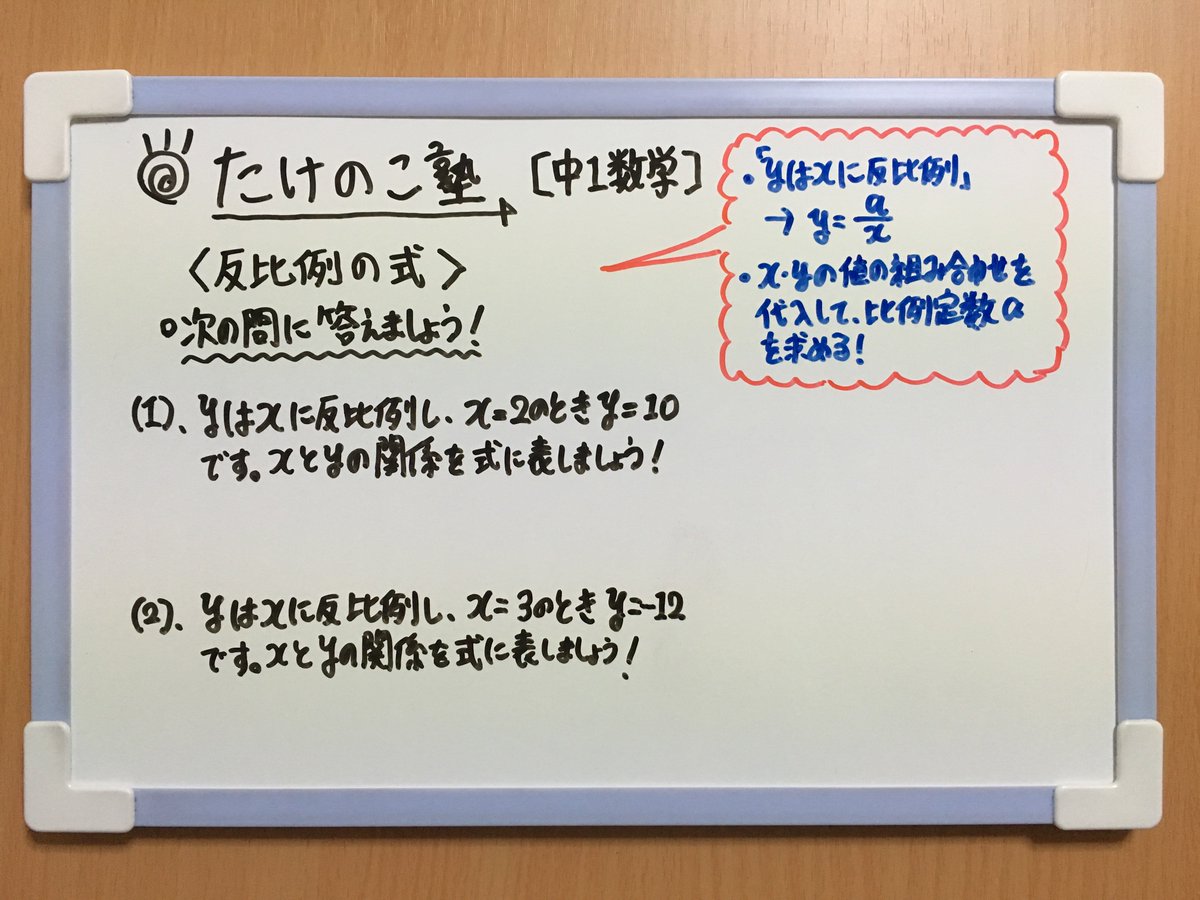 たけのこ塾 [中1数学]
〈反比例の式〉
○次の問に答えましょう!
・「yはxに反比例」
→ y=a/x
・x・yの値の組み合わせを
代入して、比例定数a
を求める!
(1)、yはxに反比例し、x=2のときy=10
です。xとyの関係を式に表しましょう!
(2)、yはxに反比例し、x=3のときy=-12
です。xとyの関係を式に表しましょう!